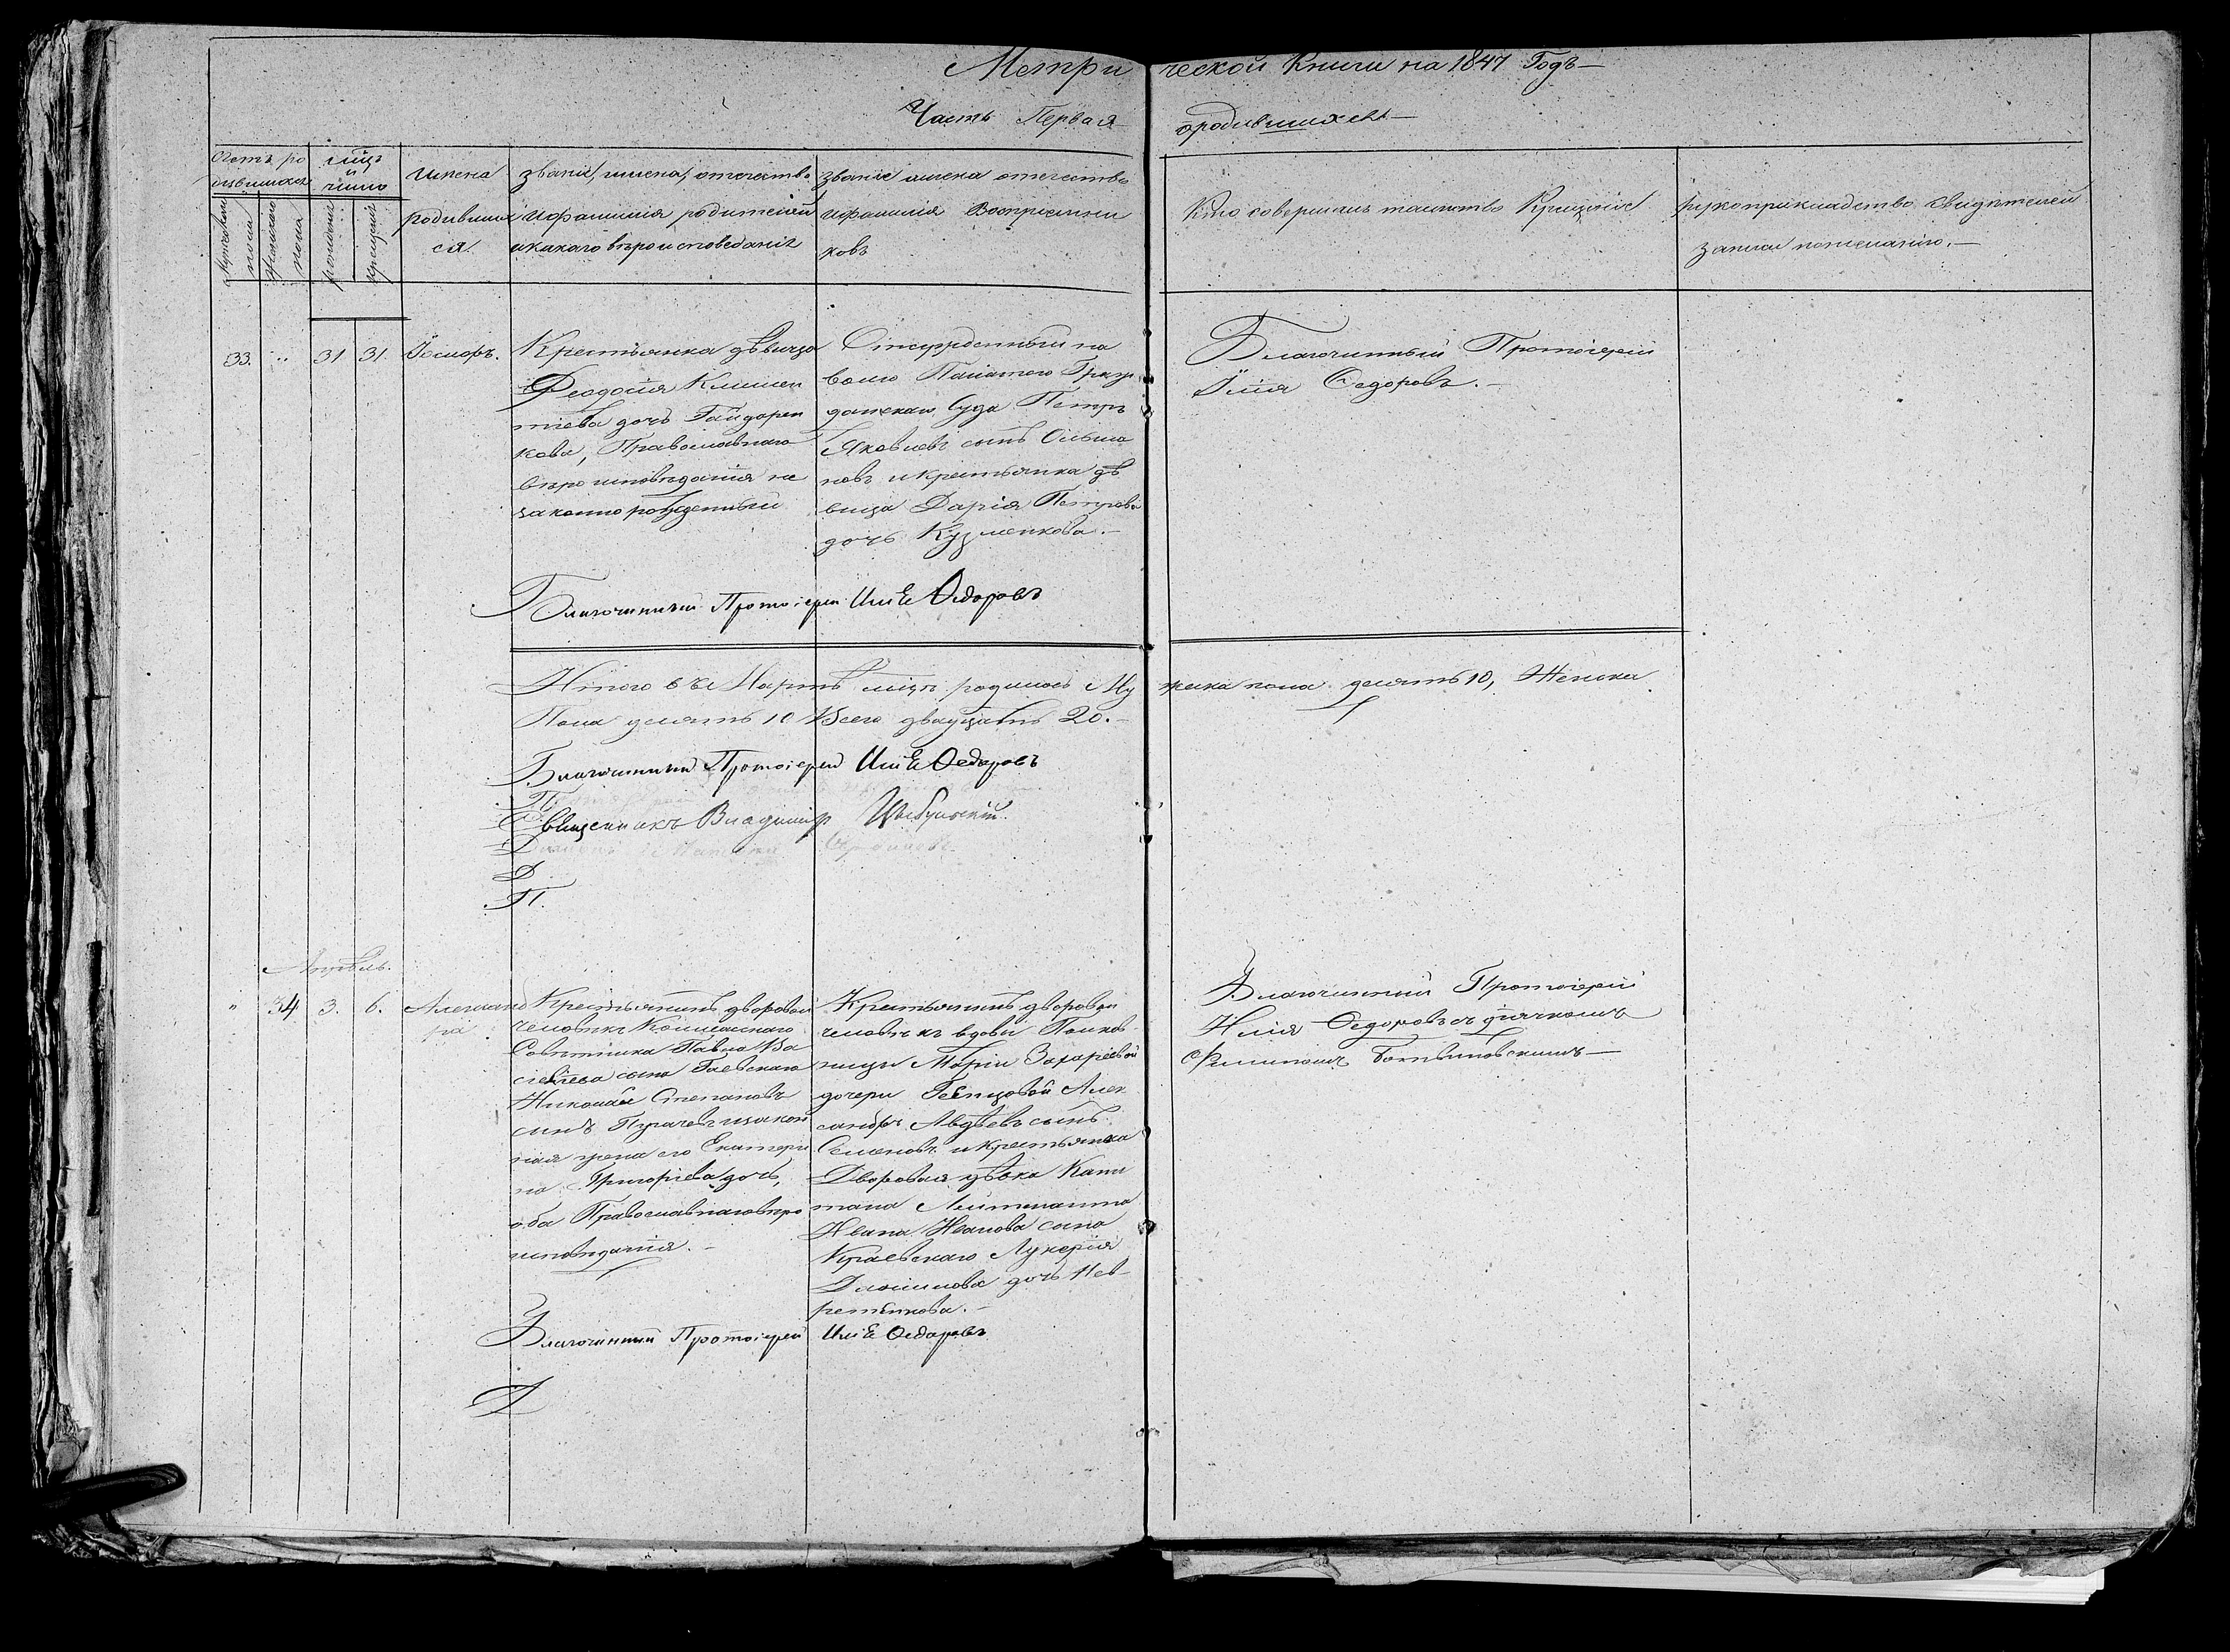 Метрической Книги на 1847 Годъ
Часть Первая о родившихся
Счетъ родившихся
мѣсяцъ и число
Имена родившихся.
званіе, имена, отечество и фамилія родителей и какаго вѣроисповеданія
званіе имена отечество и фамилія Воспріемниковъ
Кто совершалъ таинство Крещенія
рукоприкладство свидѣтелей записи по желанію.
Мужескаго пола
Женскаго пола
рожденія
крещенія
33. " 31 31. Іосифъ.
Крестьянка дѣвица
Феодосія Климен
тіева дочь Гайдорен
кова, Православнаго
вѣроисповѣданія не
законно рожденный
Столу
Палатого Граж
данскаго Суда Петръ
Яковлевъ сынъ
новъ и крестьянка дѣ
вица Дарія Петрова
дочь Кузменкова.
Благочинный Протоіерей
Илія Федоровъ.
Благочинный Протоіерей Илія Федоровъ
Итого въ Мартѣ мцѣ родилось Му жеска пола десять 10, Женска
Пола десять 10 Всего двадцать 20.
Благочинный Протоіерей Илія Федоровъ
П.
Священникъ Владиміръ
Д
Д
П.
Апрѣль.
" 34 3. 6. Александ
ра
Крестьянинъ дворовой
человѣкъ Колежскаго
Совѣтника Павла Ва
сильева сына Гаевскаго
Николай Степановъ
сынъ и закон
ная жена его Екатери
на Григорьева дочь,
оба Православнаго вѣро
исповѣданія.
Крестьянинъ дворовой
человѣкъ вдовы Полков
ницы Маріи Захаріевой
дочери Алек
сандръ Авдѣевъ сынъ
Семеновъ и Крестьянка
Дворовая дѣвка Капи
тана Лейтенанта
Ивана Иванова сына
Краевскаго Лукерія
Данилова дочь Нев
Благочинный Протоіерей
Илія Федоровъ съ дьячкомъ
Филиппомъ
Благочинный Протоіерей Илія Федоровъ
Д